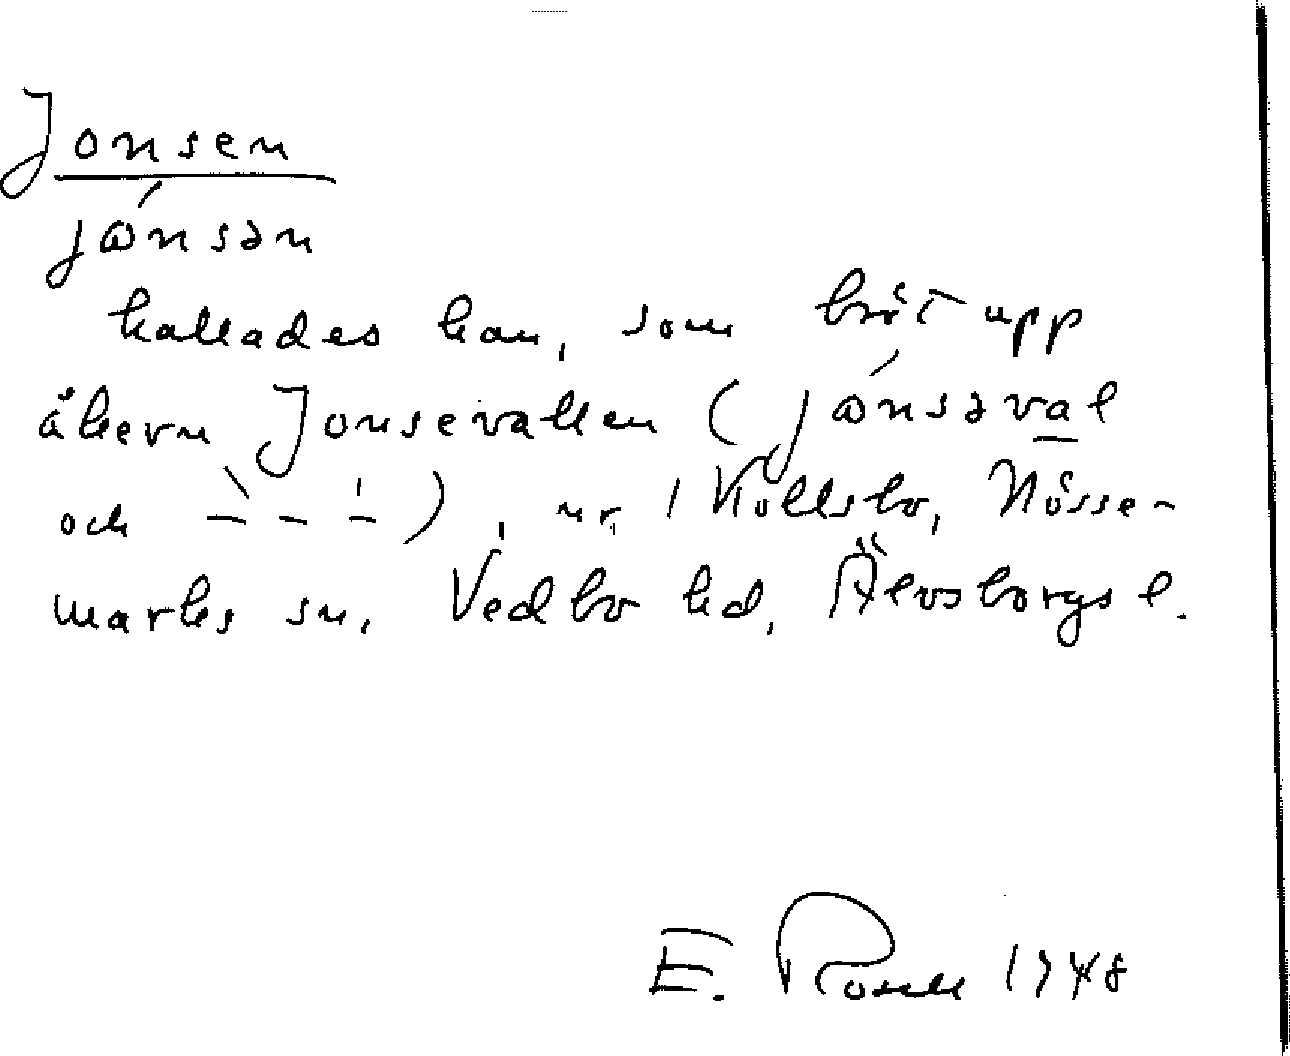 Jonsen
jónsən
kallades han, som bröt upp
åkern Jonsevallen (jónsəval
och – – –), nr 1 Köllsbo, Nösse-
marks sn, Vedbo hd, Älvsborgs l.
E. Rosell 1948